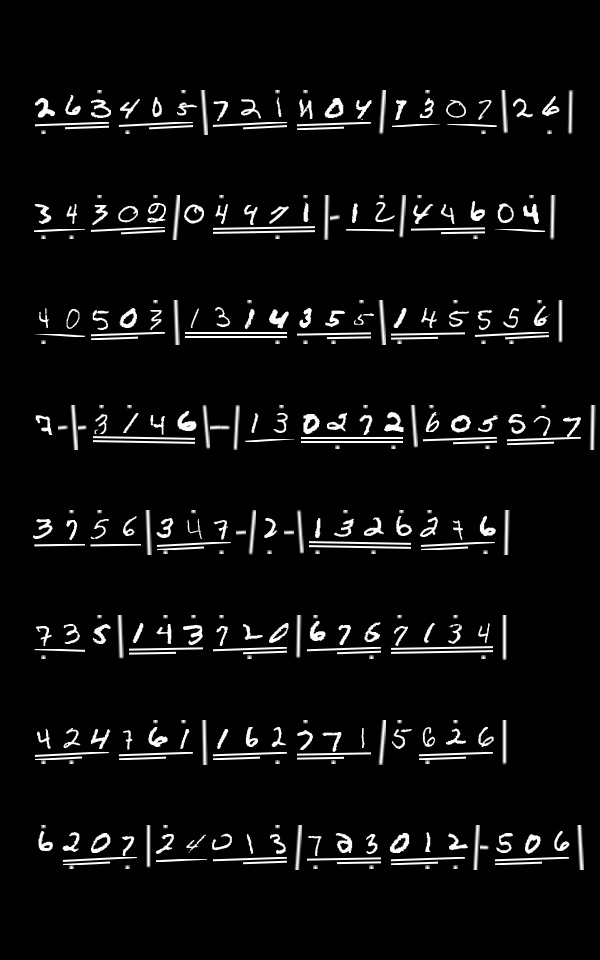 263405|721404|7307|26|
34302|04971|-12|44604|
40503|1314355|145556|
7-|-3146|-|130272|605577|
3756|347-|2-|1326276|
735|143720|6767134|
424761|162771|5626|
6207|24013|723012|-506|